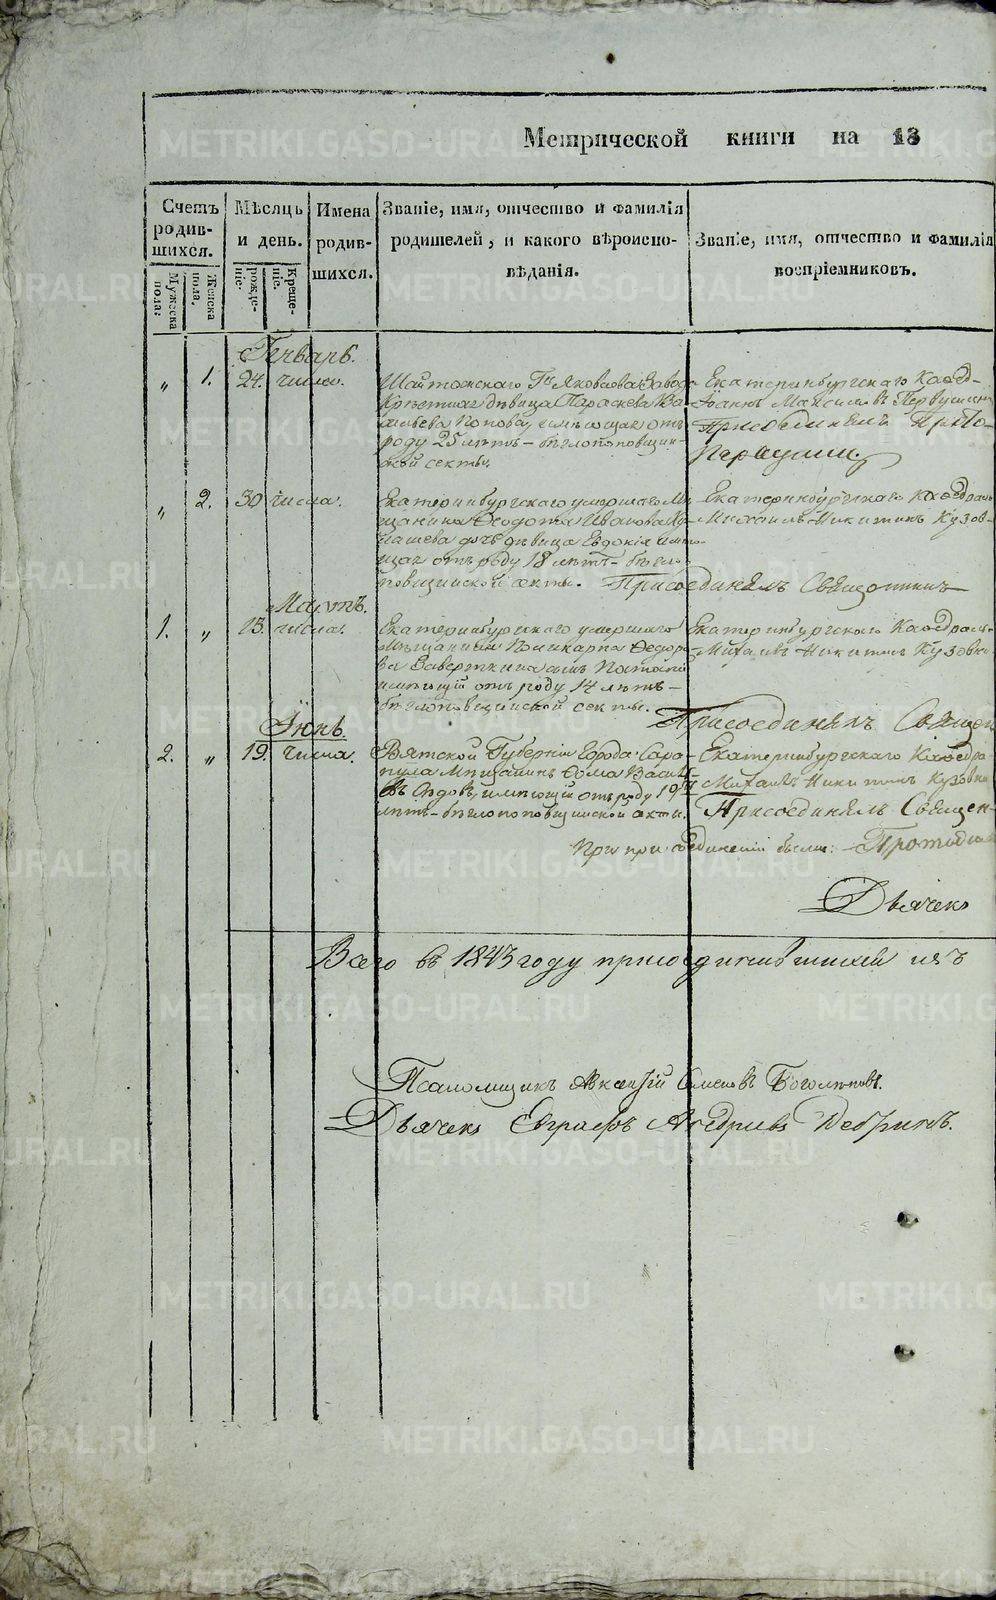 Метрической книги на 18
Счетъ родившихся.
Мужеска пола.
Женска пола.
Мѣсяцъ и день.
рожденіе.
крещеніе.
Имена родившихся.
Званіе, имя, отчество и фамилія
родителей, и какого вѣроиспо-
вѣданія.
Званіе, имя, отчество и фамилія
воспріемниковъ.
Генварь.
„ 1. 24. числа.
Шайтанскаго Гг Яковлева Завода
девица Параскева Ва
сильева Попова, имѣющая отъ
роду 25 лѣтъ - бѣглопоповщин-
ской секты.
Екатеринбургскаго Каѳед-
Іоаннъ Максимовъ Первушин
Присоединялъ Прото-
Первушин
„ 2. 30 числа.
Екатеринбургскаго умершаго Мѣ
щанина Ѳеодота Иванова
дочь дѣвица Евдокія имѣю-
щая отъ роду 18 лѣтъ - бѣгло
поповщинской секты.
Екатеринбургскаго Каѳедраль
Михаилъ Никитинъ Кузов-
Присоединялъ Священникъ
Мартъ.
1. „ 15. числа.
Екатеринбургскаго умершаго
Мѣщанина Поликарпа Ѳедоро
ва сынъ
имѣющій отъ роду 14 лѣтъ -
бѣглопоповщинской секты.
Екатеринбургскаго Каѳедраль-
Михаилъ Никитинъ Кузовни
Присоединялъ Священ
Іюнь.
2. „ 19. числа.
Вятской Губерніи Города Сара-
пула Мѣщанинъ Ѳома Василь-
въ имѣющій отъ роду 19ть
лѣтъ - бѣглопоповщинской секты.
Екатеринбургскаго Каѳедра
Михаилъ Никитинъ Кузовни
Присоединялъ Священ-
При присоединеніи были: Протодіак
Дьячекъ
Всего въ 1843 году присоединившихся изъ
Псаломщикъ Семеновъ Боголѣповъ.
Дьячекъ Евграфъ Андреевъ
METRIKI.GASO-URAL.RU